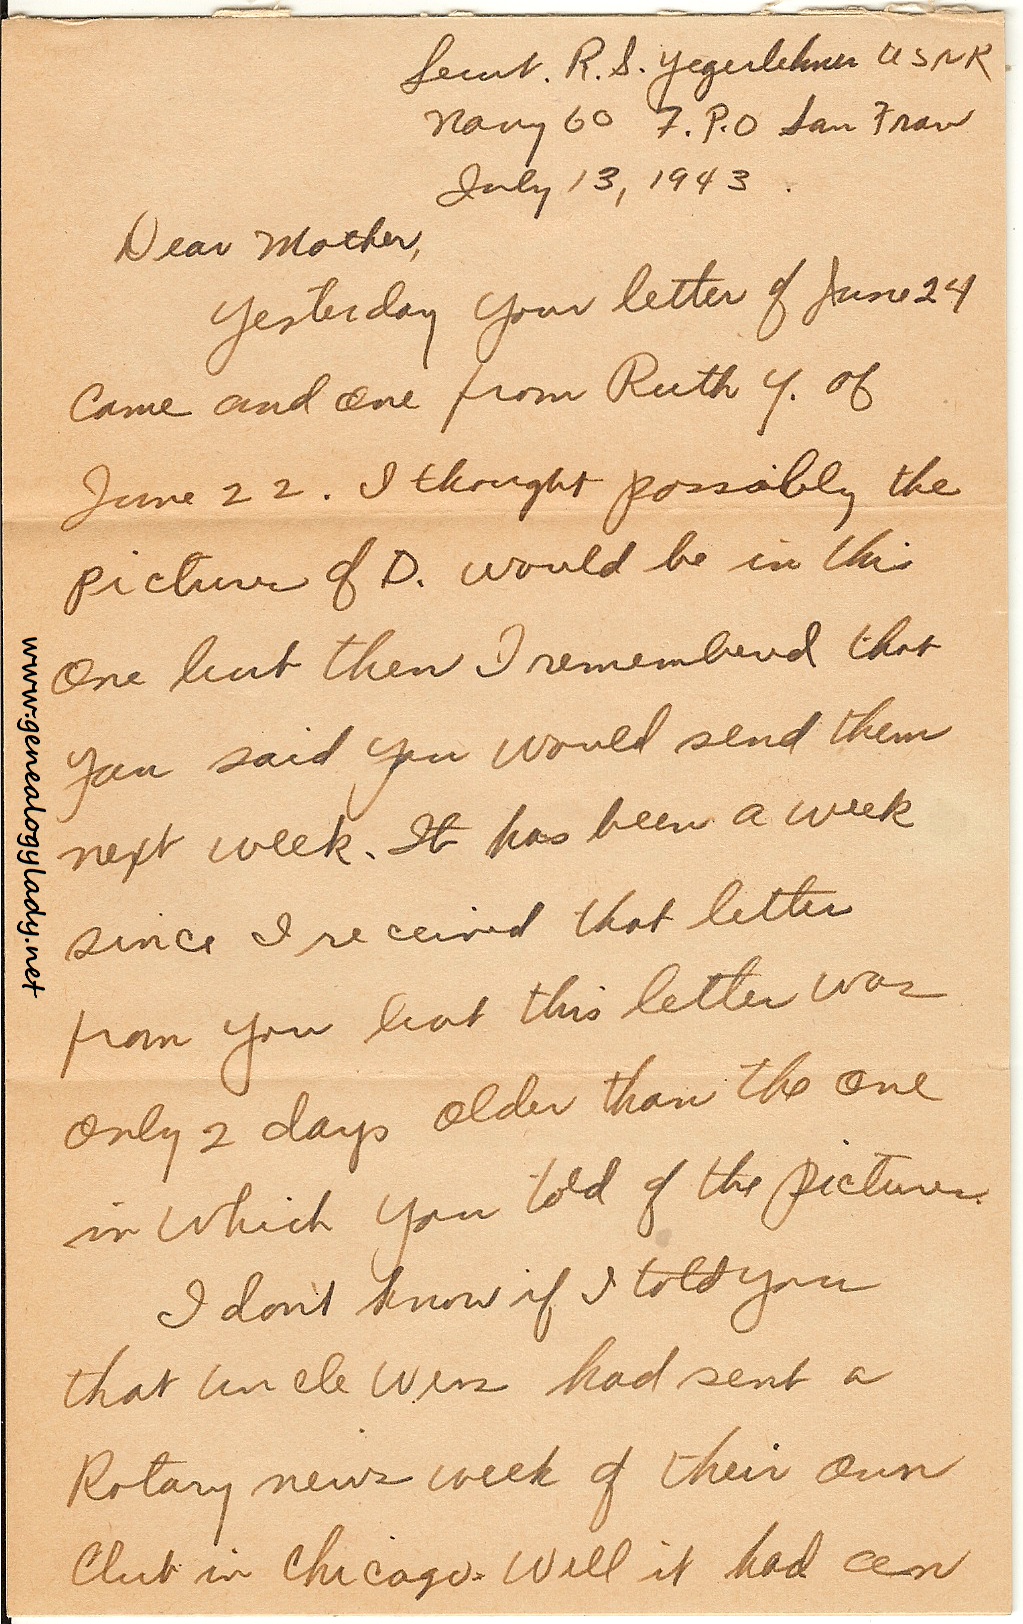 Lieut. R. S. Yegerlehner USNR
Navy 60 F.P.O San Fran
July 13, 1943.
Dear Mother,
Yesterday your letter of June 24
came and one from Ruth Y. of
June 22. I thought possibly the
pictures of D. would be in this
one but then I remembered that
you said you would send them
next week. It has been a week
since I received that letter
from you but this letter was
only 2 days older than the one
in which you told of the pictures.
I don't know if I told you
that uncle Wers had sent a
Rotary news week of their own
Club in Chicago. Well it had an
www.genealogylady.net